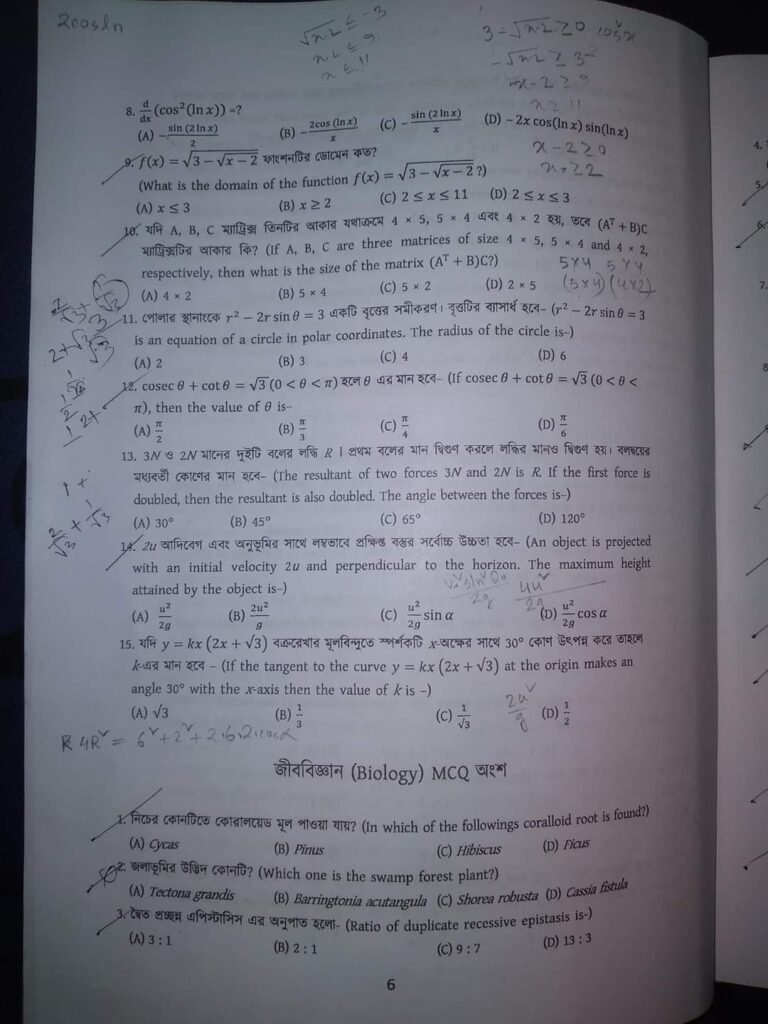 2cosln
√x-2 ≤ -3
x-2 ≤ 9
x ≤ 11
3 - √x-2 ≥ 0
-√x-2 ≥ 3²
x ≥ 11
8. d/dx (cos²(ln x)) =?
(A) −sin (2 ln x)/2 (B) −2cos (ln x)/x (C) −sin (2 ln x)/x (D) −2x cos(ln x) sin(ln x)
x - 2 ≥ 0
x ≥ 2
9. f(x) = √(3 − √(x − 2)) ফাংশনটির ডোমেন কত?
(What is the domain of the function f(x) = √(3 − √(x − 2)) ?)
(A) x ≤ 3 (B) x ≥ 2 (C) 2 ≤ x ≤ 11 (D) 2 ≤ x ≤ 3
10. যদি A, B, C ম্যাট্রিক্স তিনটির আকার যথাক্রমে 4 × 5, 5 × 4 এবং 4 × 2 হয়, তবে (Aᵀ + B)C
ম্যাট্রিক্সটির আকার কি? (If A, B, C are three matrices of size 4 × 5, 5 × 4 and 4 × 2,
respectively, then what is the size of the matrix (Aᵀ + B)C?)
5×4 5×4
(A) 4 × 2 (B) 5 × 4 (C) 5 × 2 (D) 2 × 5
(5×4) (4×2)
11. পোলার স্থানাংকে r² − 2r sin θ = 3 একটি বৃত্তের সমীকরণ। বৃত্তটির ব্যাসার্ধ হবে- (r² − 2r sin θ = 3
is an equation of a circle in polar coordinates. The radius of the circle is-)
(A) 2 (B) 3 (C) 4 (D) 6
12. cosec θ + cot θ = √3 (0 < θ < π) হলে θ এর মান হবে- (If cosec θ + cot θ = √3 (0 < θ <
π), then the value of θ is-
(A) π/2 (B) π/3 (C) π/4 (D) π/6
13. 3N ও 2N মানের দুইটি বলের লব্ধি R । প্রথম বলের মান দ্বিগুণ করলে লব্ধির মানও দ্বিগুণ হয়। বলদ্বয়ের
মধ্যবর্তী কোণের মান হবে- (The resultant of two forces 3N and 2N is R. If the first force is
doubled, then the resultant is also doubled. The angle between the forces is-)
(A) 30° (B) 45° (C) 65° (D) 120°
14. 2u আদিবেগ এবং অনুভূমির সাথে লম্বভাবে প্রক্ষিপ্ত বস্তুর সর্বোচ্চ উচ্চতা হবে- (An object is projected
with an initial velocity 2u and perpendicular to the horizon. The maximum height
attained by the object is-)
4u²/2g
(A) u²/2g (B) 2u²/g (C) u²/2g sin α (D) u²/2g cos α
15. যদি y = kx (2x + √3) বক্ররেখার মূলবিন্দুতে স্পর্শকটি x-অক্ষের সাথে 30° কোণ উৎপন্ন করে তাহলে
k-এর মান হবে – (If the tangent to the curve y = kx (2x + √3) at the origin makes an
angle 30° with the x-axis then the value of k is –)
(A) √3 (B) 1/3 (C) 1/√3 (D) 1/2
2u²/g
R 4R² = 6² + 2² + 2.6.2 cosα
জীববিজ্ঞান (Biology) MCQ অংশ
1. নিচের কোনটিতে কোরালয়েড মূল পাওয়া যায়? (In which of the followings coralloid root is found?)
(A) Cycas (B) Pinus (C) Hibiscus (D) Ficus
2. জলাভূমির উদ্ভিদ কোনটি? (Which one is the swamp forest plant?)
(A) Tectona grandis (B) Barringtonia acutangula (C) Shorea robusta (D) Cassia fistula
3. দ্বৈত প্রচ্ছন্ন এপিস্টাসিস এর অনুপাত হলো- (Ratio of duplicate recessive epistasis is-)
(A) 3 : 1 (B) 2 : 1 (C) 9 : 7 (D) 13 : 3
6
4.
5.
6.
7.
8